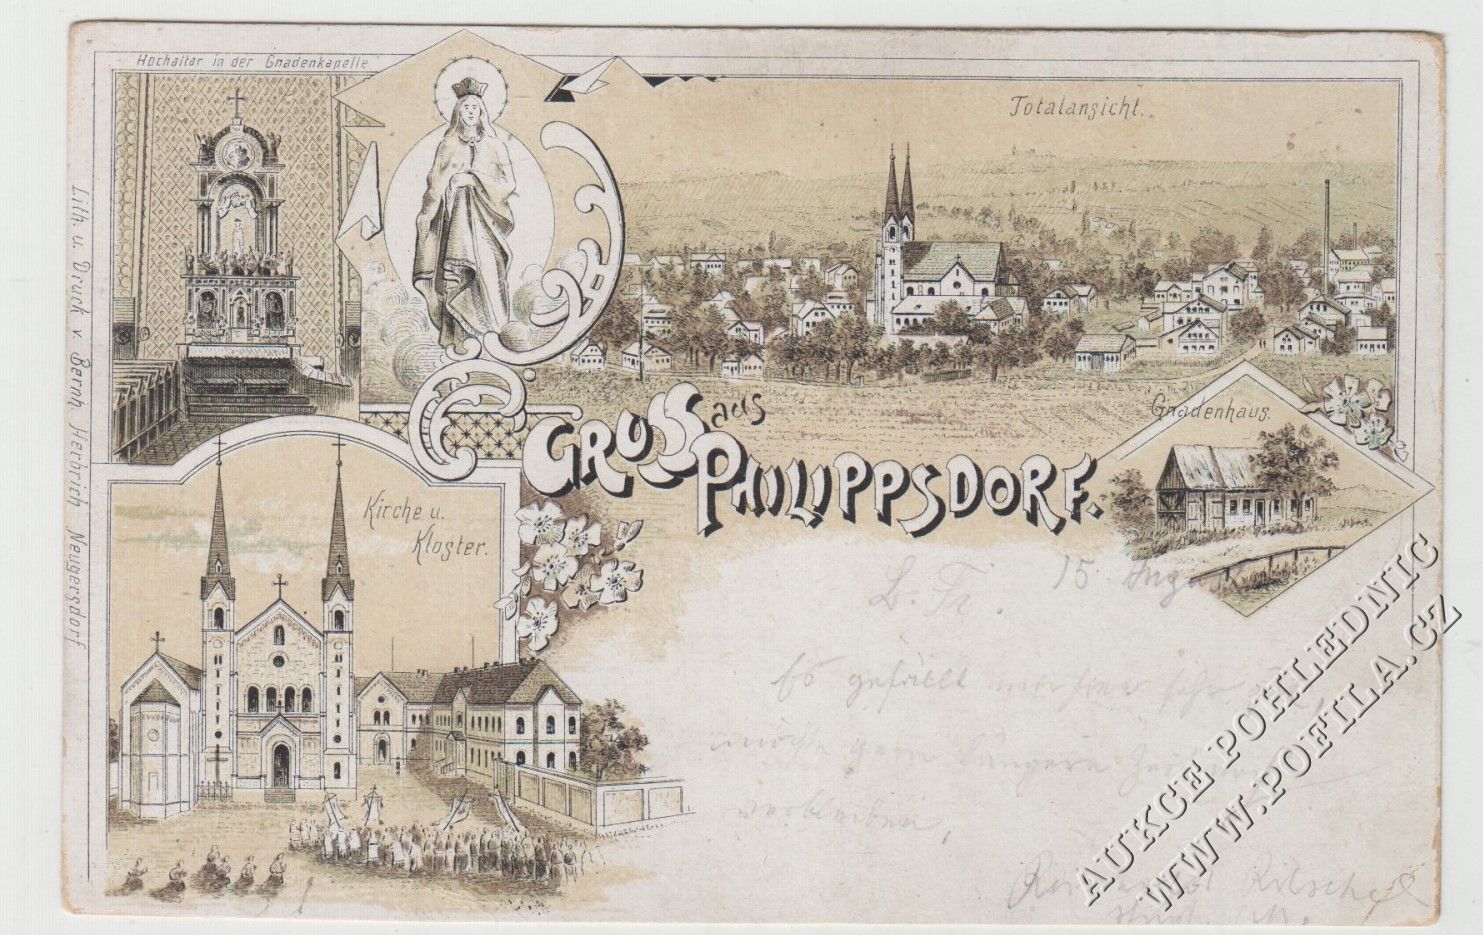 Hochaltar in der Gnadenkapelle
Totalansicht.
Gnadenhaus.
GRUSS aus
PHILIPPSDORF.
Kirche u.
Kloster.
Lith. u. Druck v. Bernh. Herbrich Neugersdorf
15
Es gefällt
möchte gern längere
verbleiben,
AUKCE POHLEDNIC
WWW.POFILA.CZ